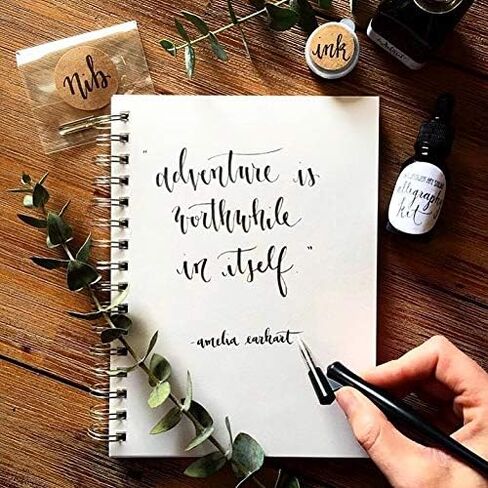 Nib
ink
"adventure is
worthwhile
in itself."
-amelia earhart
calligraphy
kit